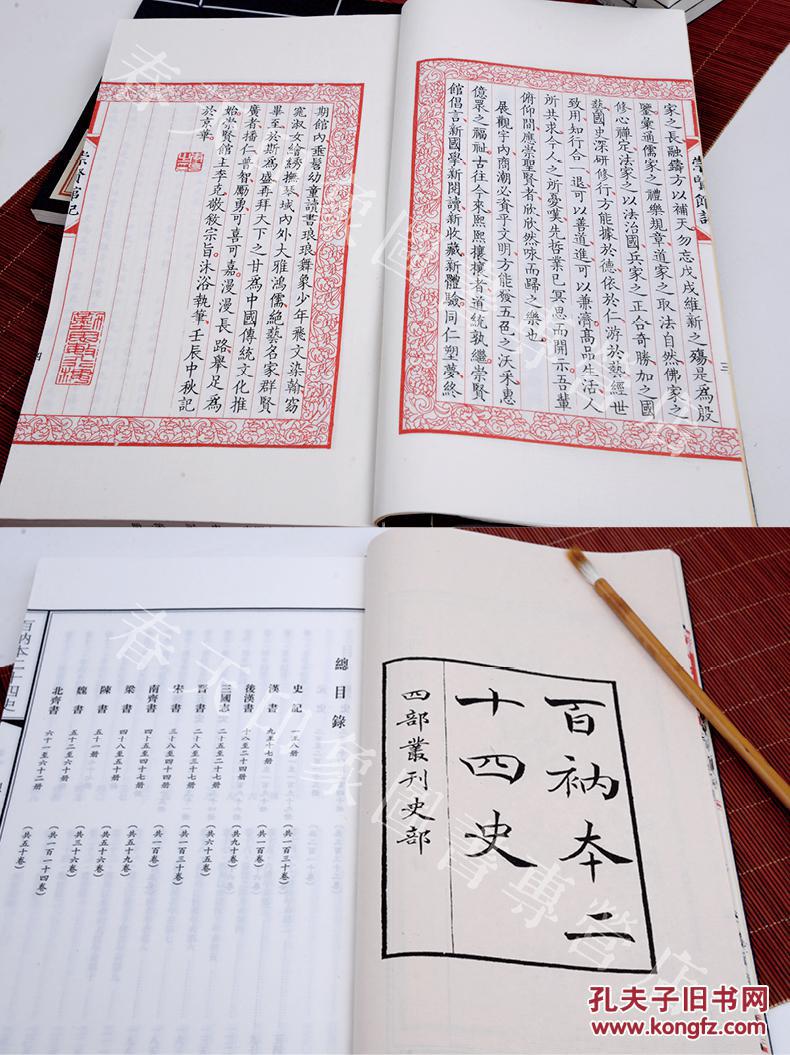 家之長融鑄方以補天勿忘戊戌維新之殤是為殷
鑒彙通儒家之禮樂規章道家之取法自然佛家之
修心禪定法家之以法治國兵家之正合奇勝加之國
藝國史深研修行方能據於德依於仁游於藝經世
致用知行合一退可以善道進可以兼濟高品生活人
所共求今人之所憂嘆先哲業已冥思而開示吾輩
俯仰間應崇聖賢者欣欣然咏而歸之樂也
展觀宇內商潮必資乎文明方能發五色之沃采惠
億眾之福祉古往今來熙熙攘攘者道統孰繼崇賢
館倡言新國學新閱讀新收藏新體驗同仁塑夢終
崇賢館記
三
期館內垂髫幼童讀書琅琅舞象少年飛文染翰窈
窕淑女繪綉撫琴域內外大雅鴻儒絕藝名家群賢
畢至於斯為盛再拜天下之甘為中國傳統文化推
廣者播仁普智勵勇可喜可嘉漫漫長路舉足為
始崇賢館主李克敬敘宗旨沐浴執筆壬辰中秋記
於京華
崇賢館記
四
百衲本二
十四史
四部叢刊史部
總目錄
史記 一至八册 （共一百三十卷）
漢書 九至十七册 （共一百卷）
後漢書 十八至二十四册 （共九十卷）
三國志 二十五至二十七册 （共六十五卷）
晉書 二十八至三十七册 （共一百三十卷）
宋書 三十八至四十四册 （共一百卷）
南齊書 四十五至四十七册 （共五十九卷）
梁書 四十八至五十册 （共五十六卷）
陳書 五十一册 （共三十六卷）
魏書 五十二至六十册 （共一百一十四卷）
北齊書 六十一至六十二册 （共五十卷）
百衲本二十四史
春天印象圖書專營店
孔夫子旧书网
www.kongfz.com